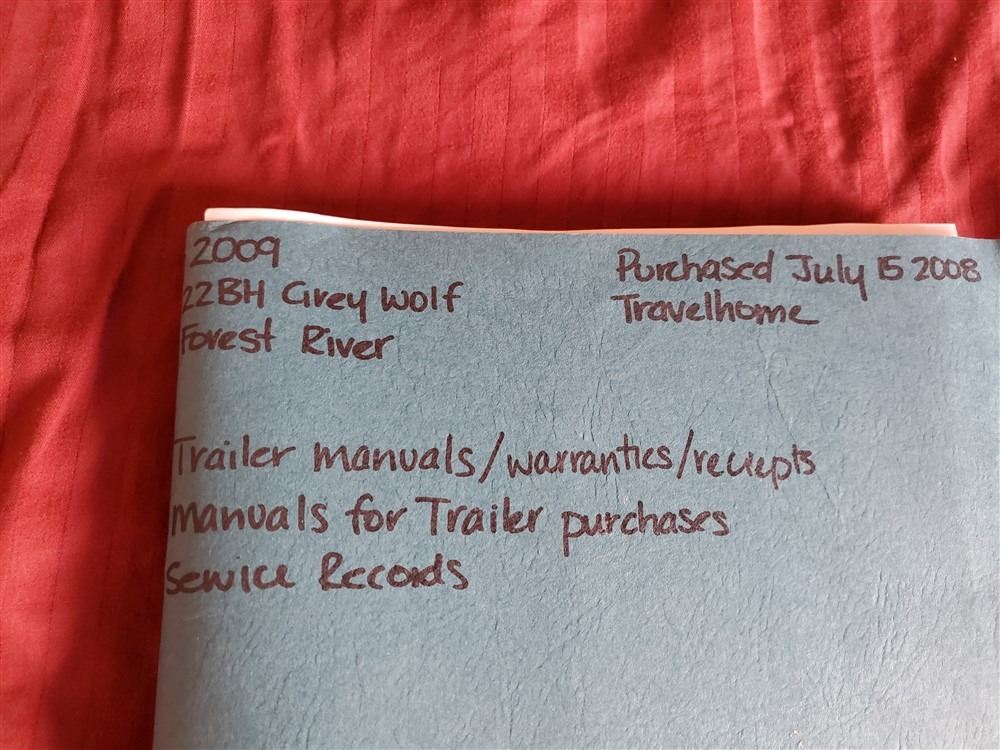 2009
22BH Grey Wolf
Forest River
Purchased July 15 2008
Travelhome
Trailer manuals/warranties/reciepts
Manuals for Trailer purchases
Service Records